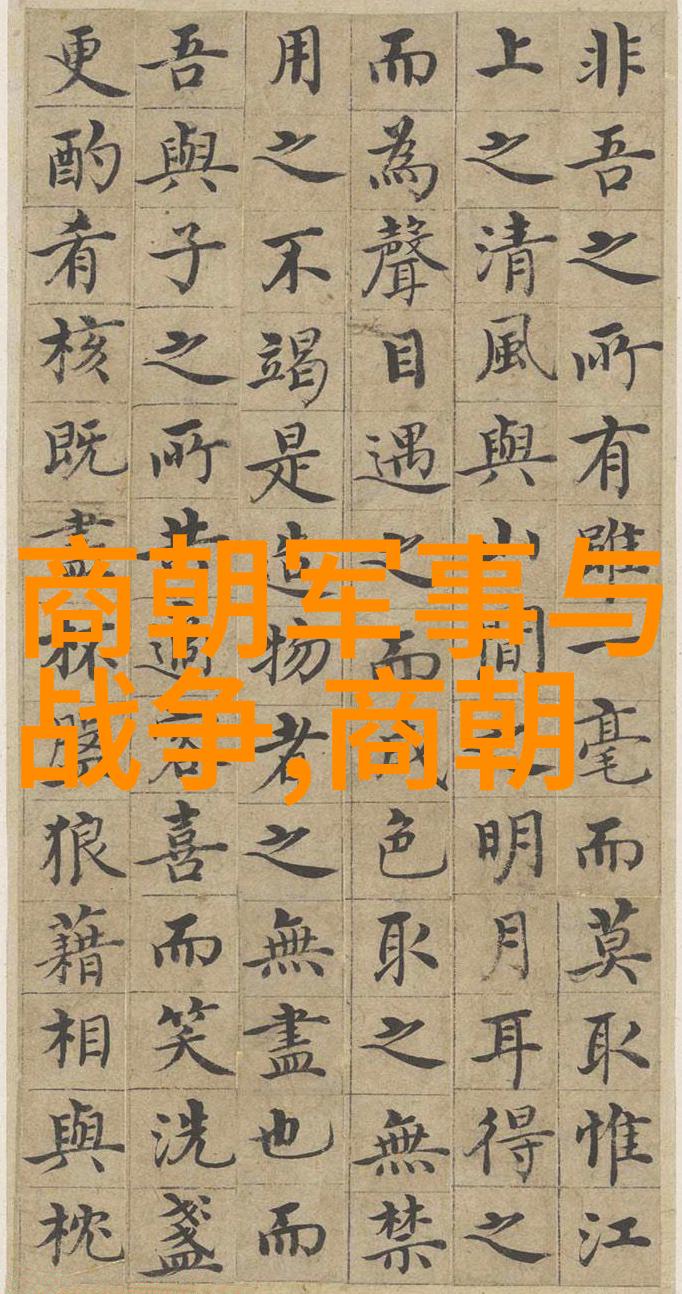 非吾之所有雖一毫而莫取惟江
上之清風與山間之明月耳得之
而為聲目遇之而成色取之無禁
用之不竭是造物者之無盡也而
吾與子之所共適客喜而笑洗盞
更酌肴核既盡杯盤狼藉相與枕
商朝军事与
战争,商朝